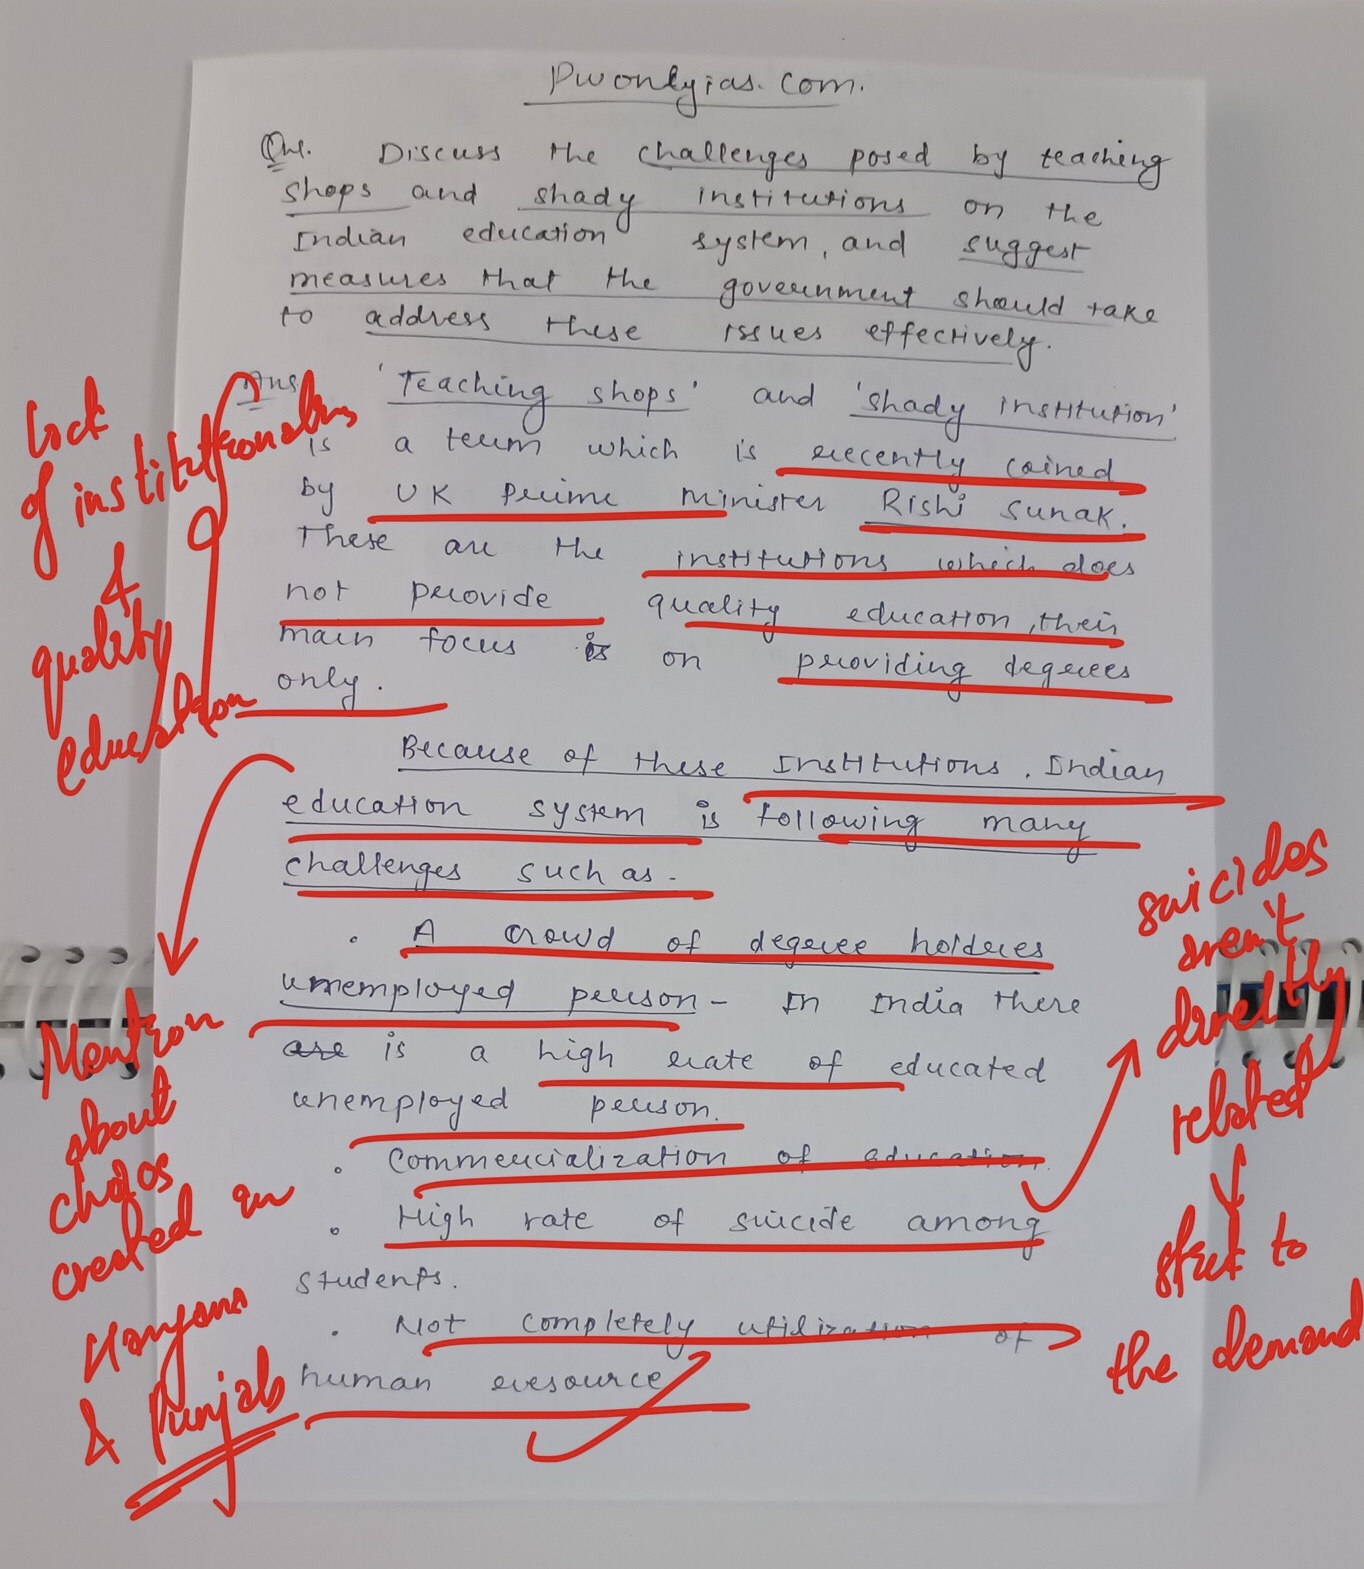 Pwonlyias.com.
Que. Discuss the challenges posed by teaching
shops and shady institutions on the
Indian education system, and suggest
measures that the government should take
to address these issues effectively.
Ans. 'Teaching shops' and 'shady institution'
is a term which is recently coined
by UK Prime Minister Rishi Sunak.
These are the institutions which does
not provide quality education, their
main focus is on providing degrees
only.
Because of these Institutions, Indian
education system is following many
challenges such as -
• A crowd of degree holders
unemployed person - In India there
are is a high rate of educated
unemployed person.
• Commercialization of education.
• High rate of suicide among
students.
• Not completely utilization of
human resource
lack
of institutionalism
&
quality
education
Mention
about
chaos
created in
Haryana
& Punjab
suicides
aren't
directly
related
stick to
the demand